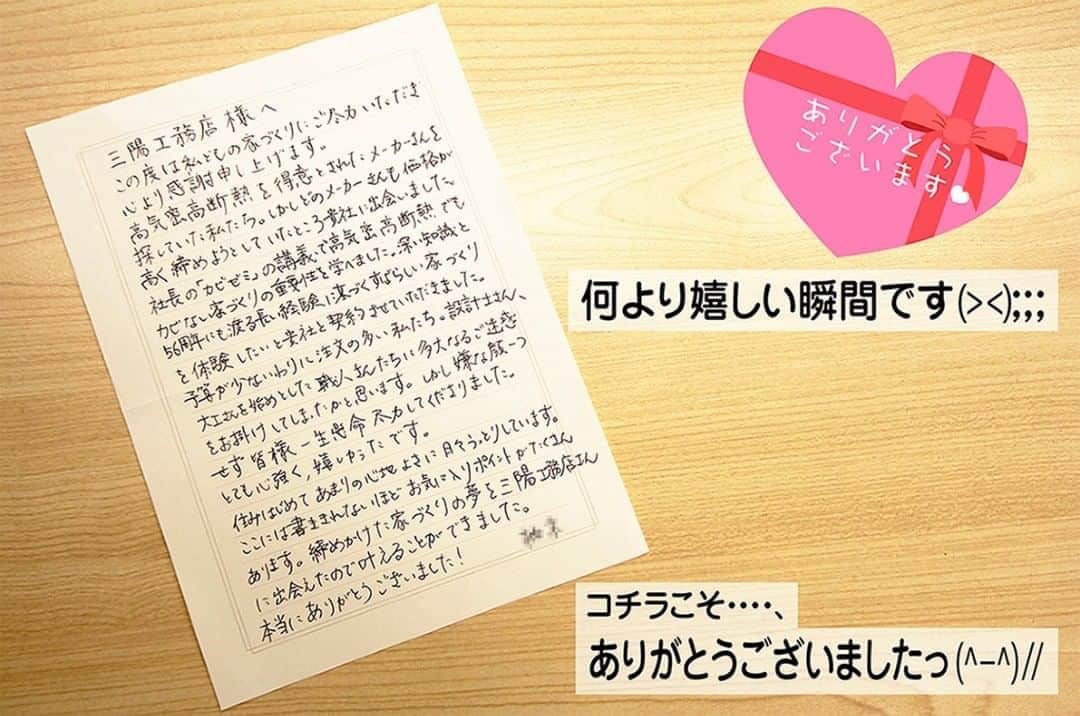 三陽工務店様へ
この度は私どもの家づくりにご尽力いただき
心より感謝申し上げます。
高気密高断熱を得意とされたメーカーさんを
探していた私たち。しかしどのメーカーさんも価格が
高く締めようとしていたところ貴社に出会いました。
社長の「カビゼミ」の講義で高気密高断熱でも
カビない家づくりの重要性を学べました。深い知識と
56周年にも渡る長い経験に基づくすばらしい家づくり
を体験したいと貴社と契約させていただきました。
予算が少ないわりに注文の多い私たち。設計士さん、
大工さんを始めとした職人さんたちに多大なるご迷惑
をお掛けしてしまったかと思います。しかし嫌な顔一つ
せず皆様一生懸命尽力してくださりました。
とても心強く、嬉しかったです。
住みはじめてあまりの心地よさに日々うっとりしています。
ここには書ききれないほどお気に入りポイントがたくさん
あります。締めかけた家づくりの夢を三陽工務店さん
に出会えたので叶えることができました。
本当にありがとうございました!
ありがとう
ございます
何より嬉しい瞬間です(><);;;
コチラこそ‥‥、
ありがとうございましたっ(^-^)//